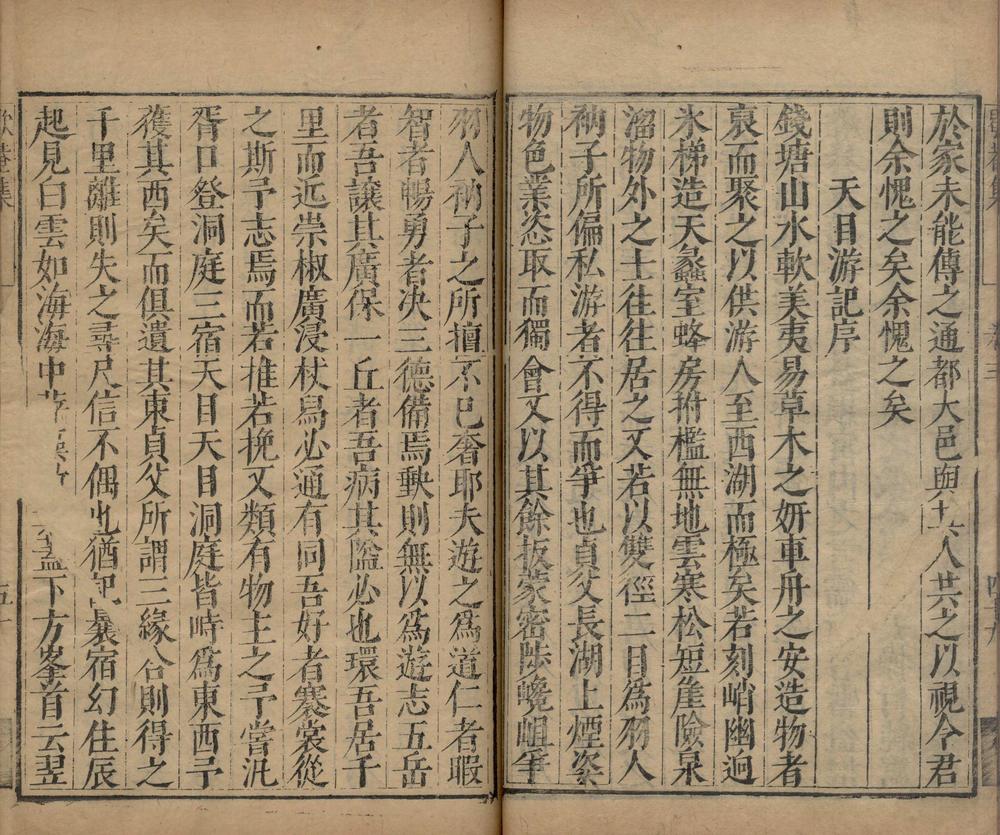 於家未能傳之通都大邑與士人共之以視今君
則余愧之矣余愧之矣
天目游記序
錢塘山水軟美夷易草木之妍車舟之安造物者
裒而聚之以供游人至西湖而極矣若刻峭幽迥
氷梯造天蠡室蜂房拊檻無地雲寒松短崖險泉
溜物外之士往往居之又若以雙徑二目為羽人
衲子所偏私游者不得而爭也貞父長湖上煙姿
物色業恣取而獨會又以其餘扳蒙密陟巉岨爭
羽人衲子之所擅不已奢耶夫遊之為道仁者暇
智者暢勇者决三德備焉歉則無以為遊志五岳
者吾讓其廣保一丘者吾病其隘必也環吾居千
里而近崇椒廣浸杖舄必通有同吾好者褰裳從
之斯予志焉而若推若挽又類有物主之予嘗汎
胥口登洞庭三宿天目天目洞庭皆時為東西予
獲其西矣而俱遺其東貞父所謂三緣合則得之
千里離則失之尋尺信不偶也猶記曩宿幻住辰
起見白雲如海海中
盖下方峯首云翌
歇菴集
卷三
四十九
五十